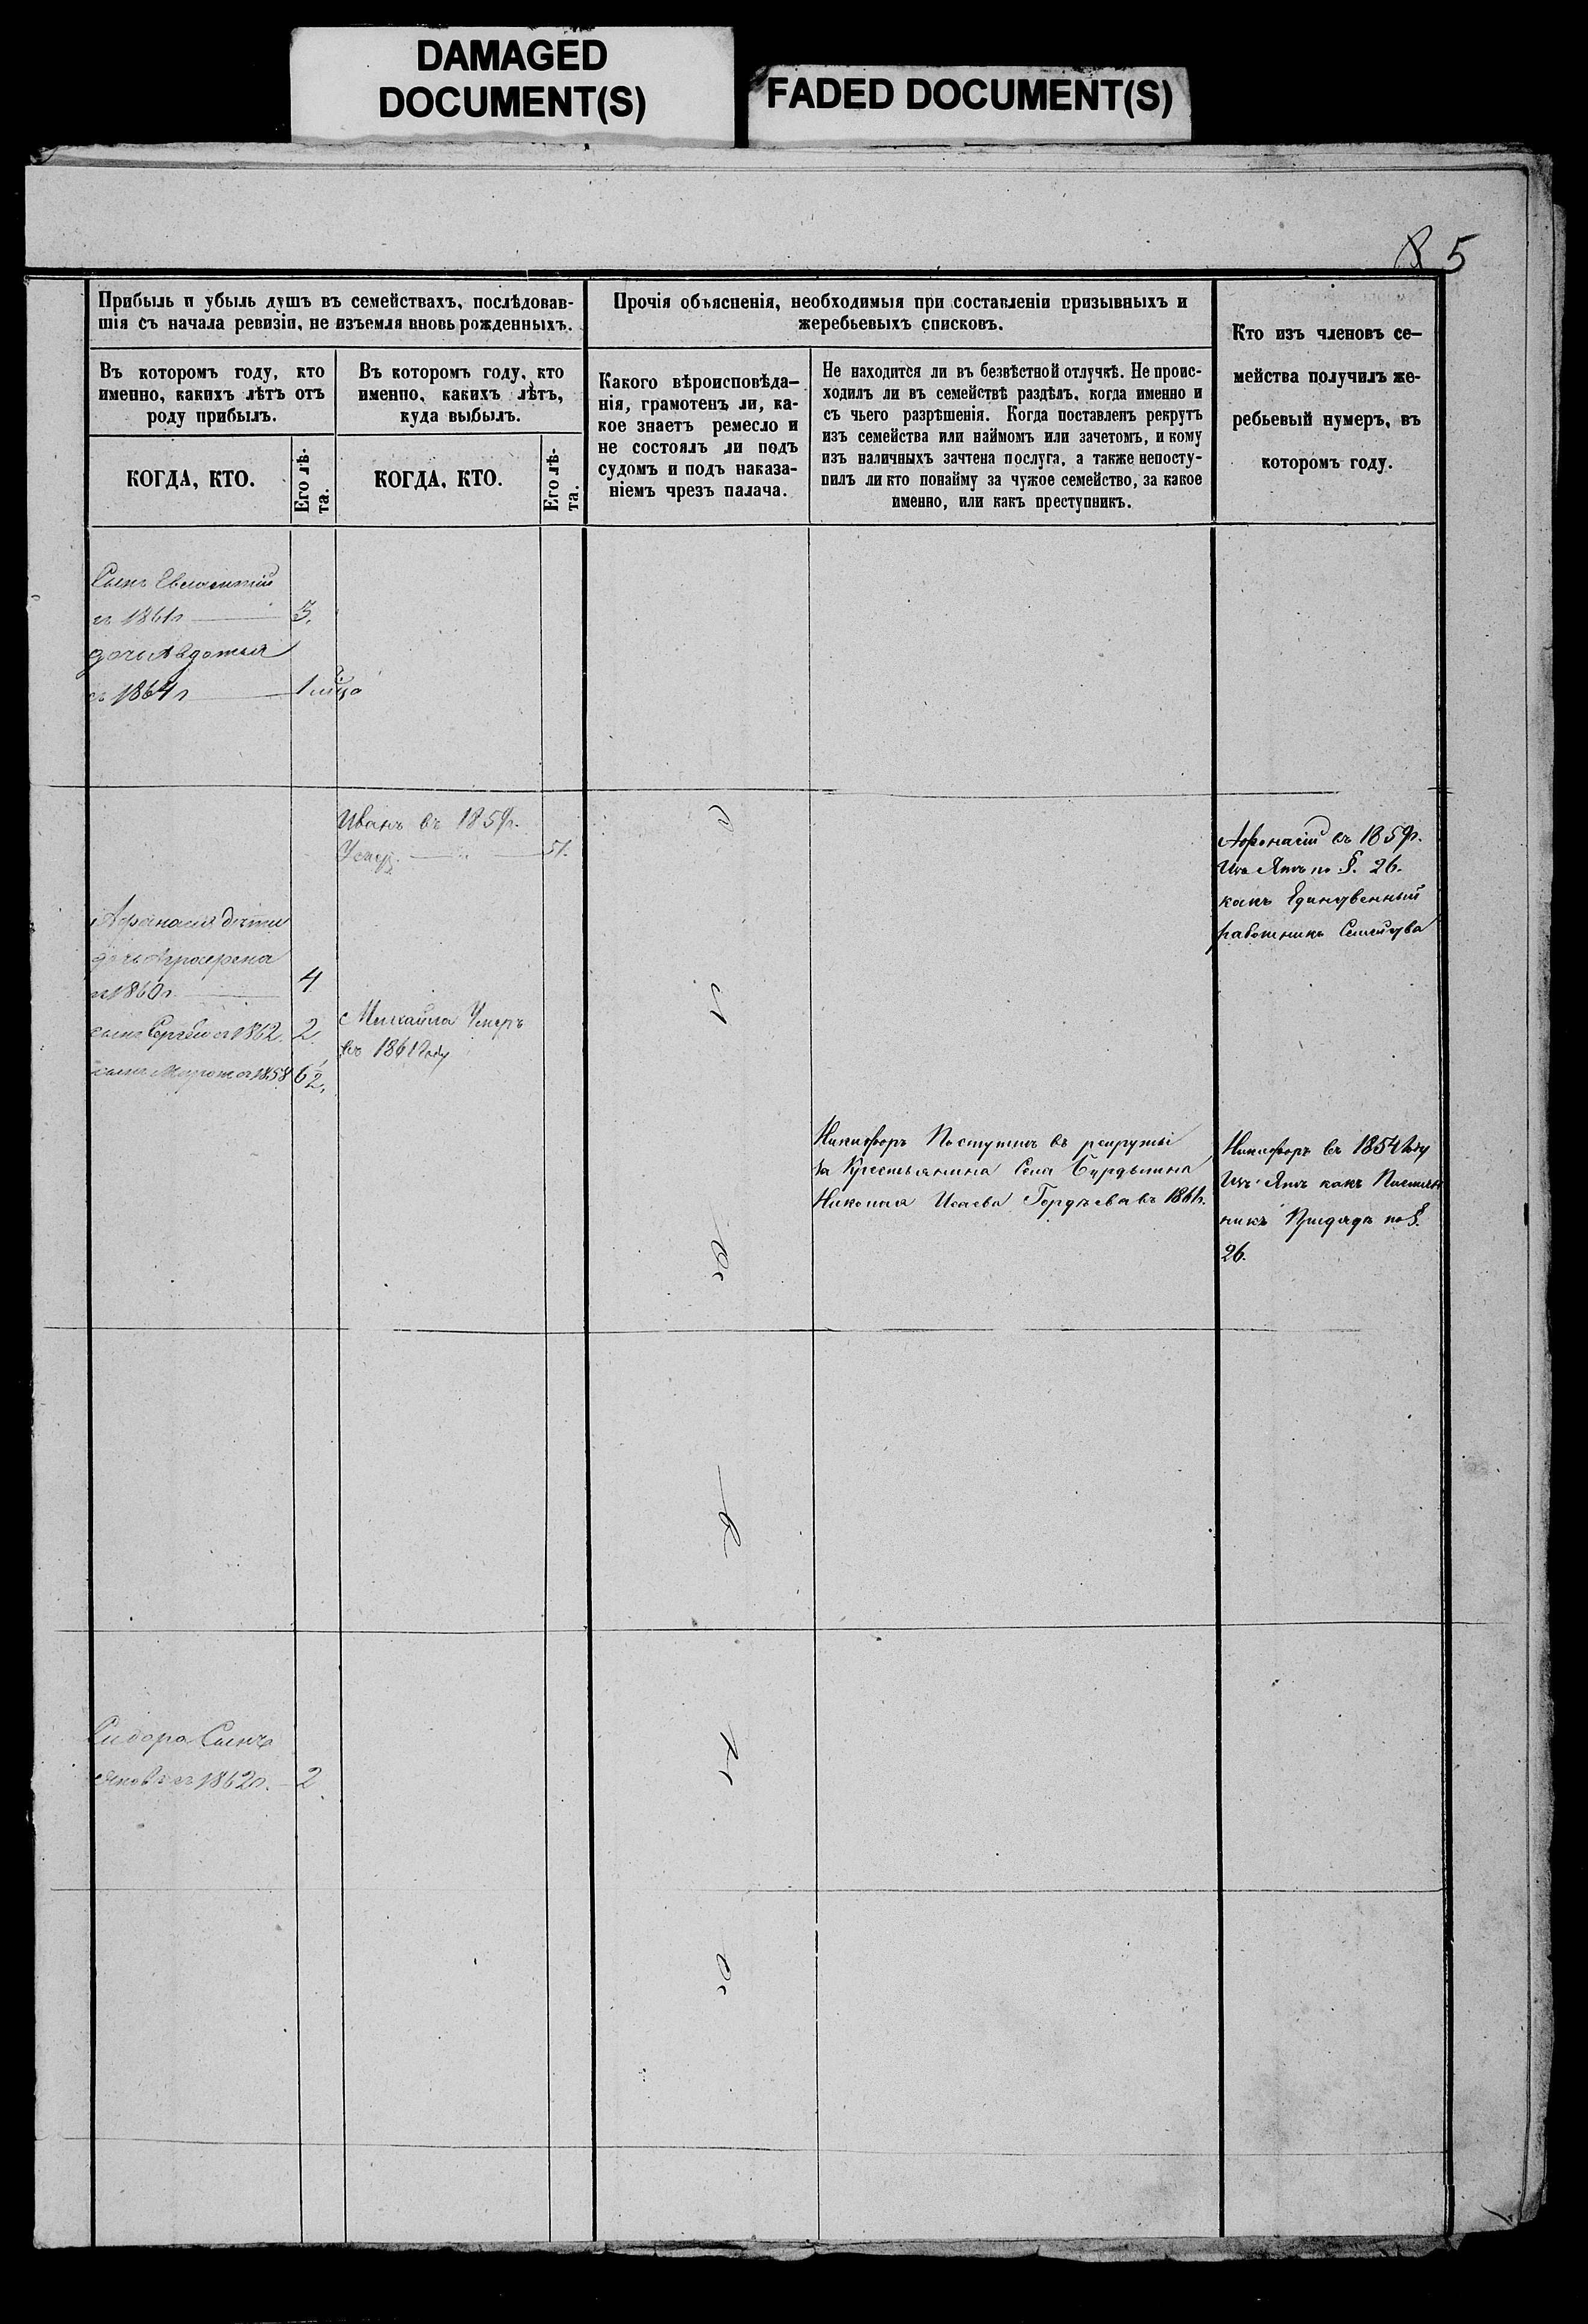 DAMAGED
DOCUMENT(S)
FADED DOCUMENT(S)
85
Прибыль и убыль душъ въ семействахъ, послѣдовав-
шія съ начала ревизіи, не изъемля вновь рожденныхъ.
Въ которомъ году, кто
именно, какихъ лѣтъ отъ
роду прибылъ.
КОГДА, КТО.
Его лѣ-
та.
Въ которомъ году, кто
именно, какихъ лѣтъ,
куда выбылъ.
КОГДА, КТО.
Его лѣ-
та.
Прочія объясненія, необходимыя при составленіи призывныхъ и
жеребьевыхъ списковъ.
Какого вѣроисповѣда-
нія, грамотенъ ли, ка-
кое знаетъ ремесло и
не состоялъ ли подъ
судомъ и подъ наказа-
ніемъ чрезъ палача.
Не находится ли въ безвѣстной отлучкѣ. Не проис-
ходилъ ли въ семействѣ раздѣлъ, когда именно и
съ чьего разрѣшенія. Когда поставленъ рекрутъ
изъ семейства или наймомъ или зачетомъ, и кому
изъ наличныхъ зачтена послуга, а также непосту-
пилъ ли кто понайму за чужое семейство, за какое
именно, или какъ преступникъ.
Кто изъ членовъ се-
мейства получилъ же-
ребьевый нумеръ, въ
которомъ году.
Сынъ
съ 1861г 3.
дочь Авдотья
съ 1864г 1
Иванъ въ 1859г.
51.
Афонасій въ 1859г.
по §. 26.
какъ Единственный
работникъ Семейства
Афанасія дѣти
дочь
съ 1860г. 4
сынъ Сергѣй съ 1862. 2.
сынъ съ 1858 6½,
Михайла Умеръ
въ 1861 году
Никифоръ Поступилъ въ рекруты
за Крестьянина Села
Николая Исаева Гордѣева въ 1861г.
Никифоръ въ 1854 году
какъ
по §.
26.
Сидора Сынъ
Яковъ съ 1862г. 2